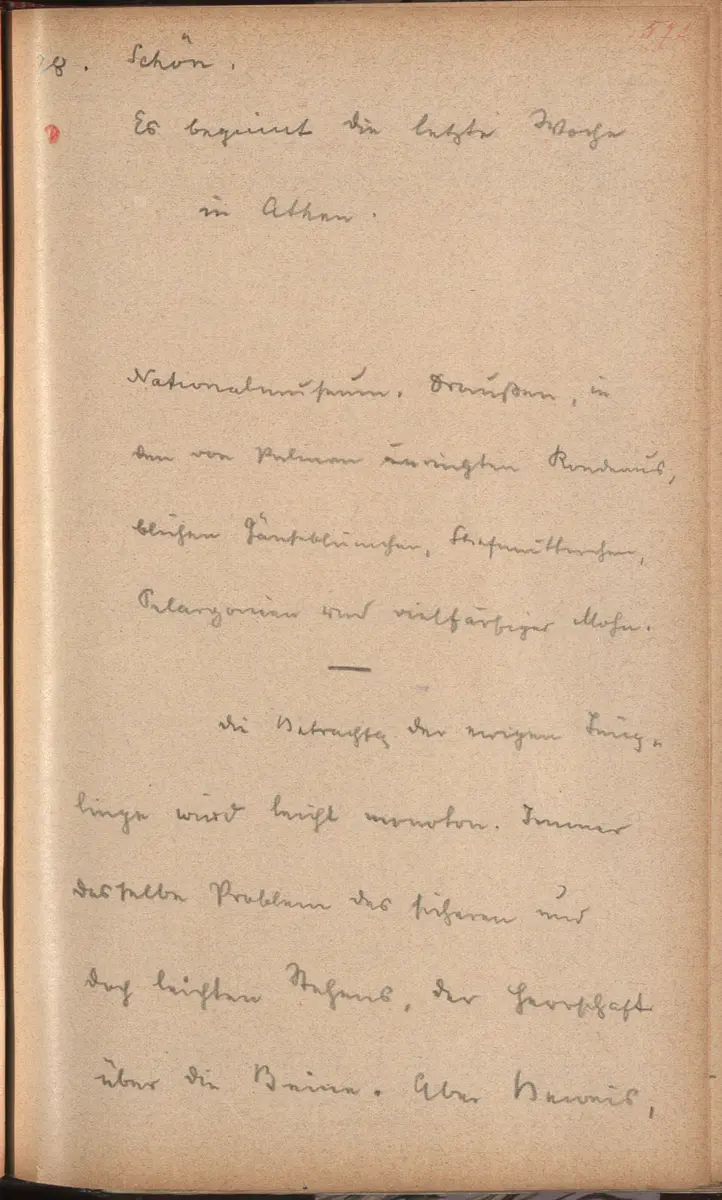 28. Schön.
Es beginnt die letzte Woche
in Athen.
Nationalmuseum. Draußen, in
den von Palmen umringten Rondeaus,
blühen Gänseblümchen, Stiefmütterchen,
Pelargonien und vielfärbiger Mohn.
Die Betrachtg der ewigen Jüng-
linge wird leicht monoton. Immer
dasselbe Problem des sicheren und
doch leichten Stehens, der Herrschaft
über die Beine. Aber Beweis,